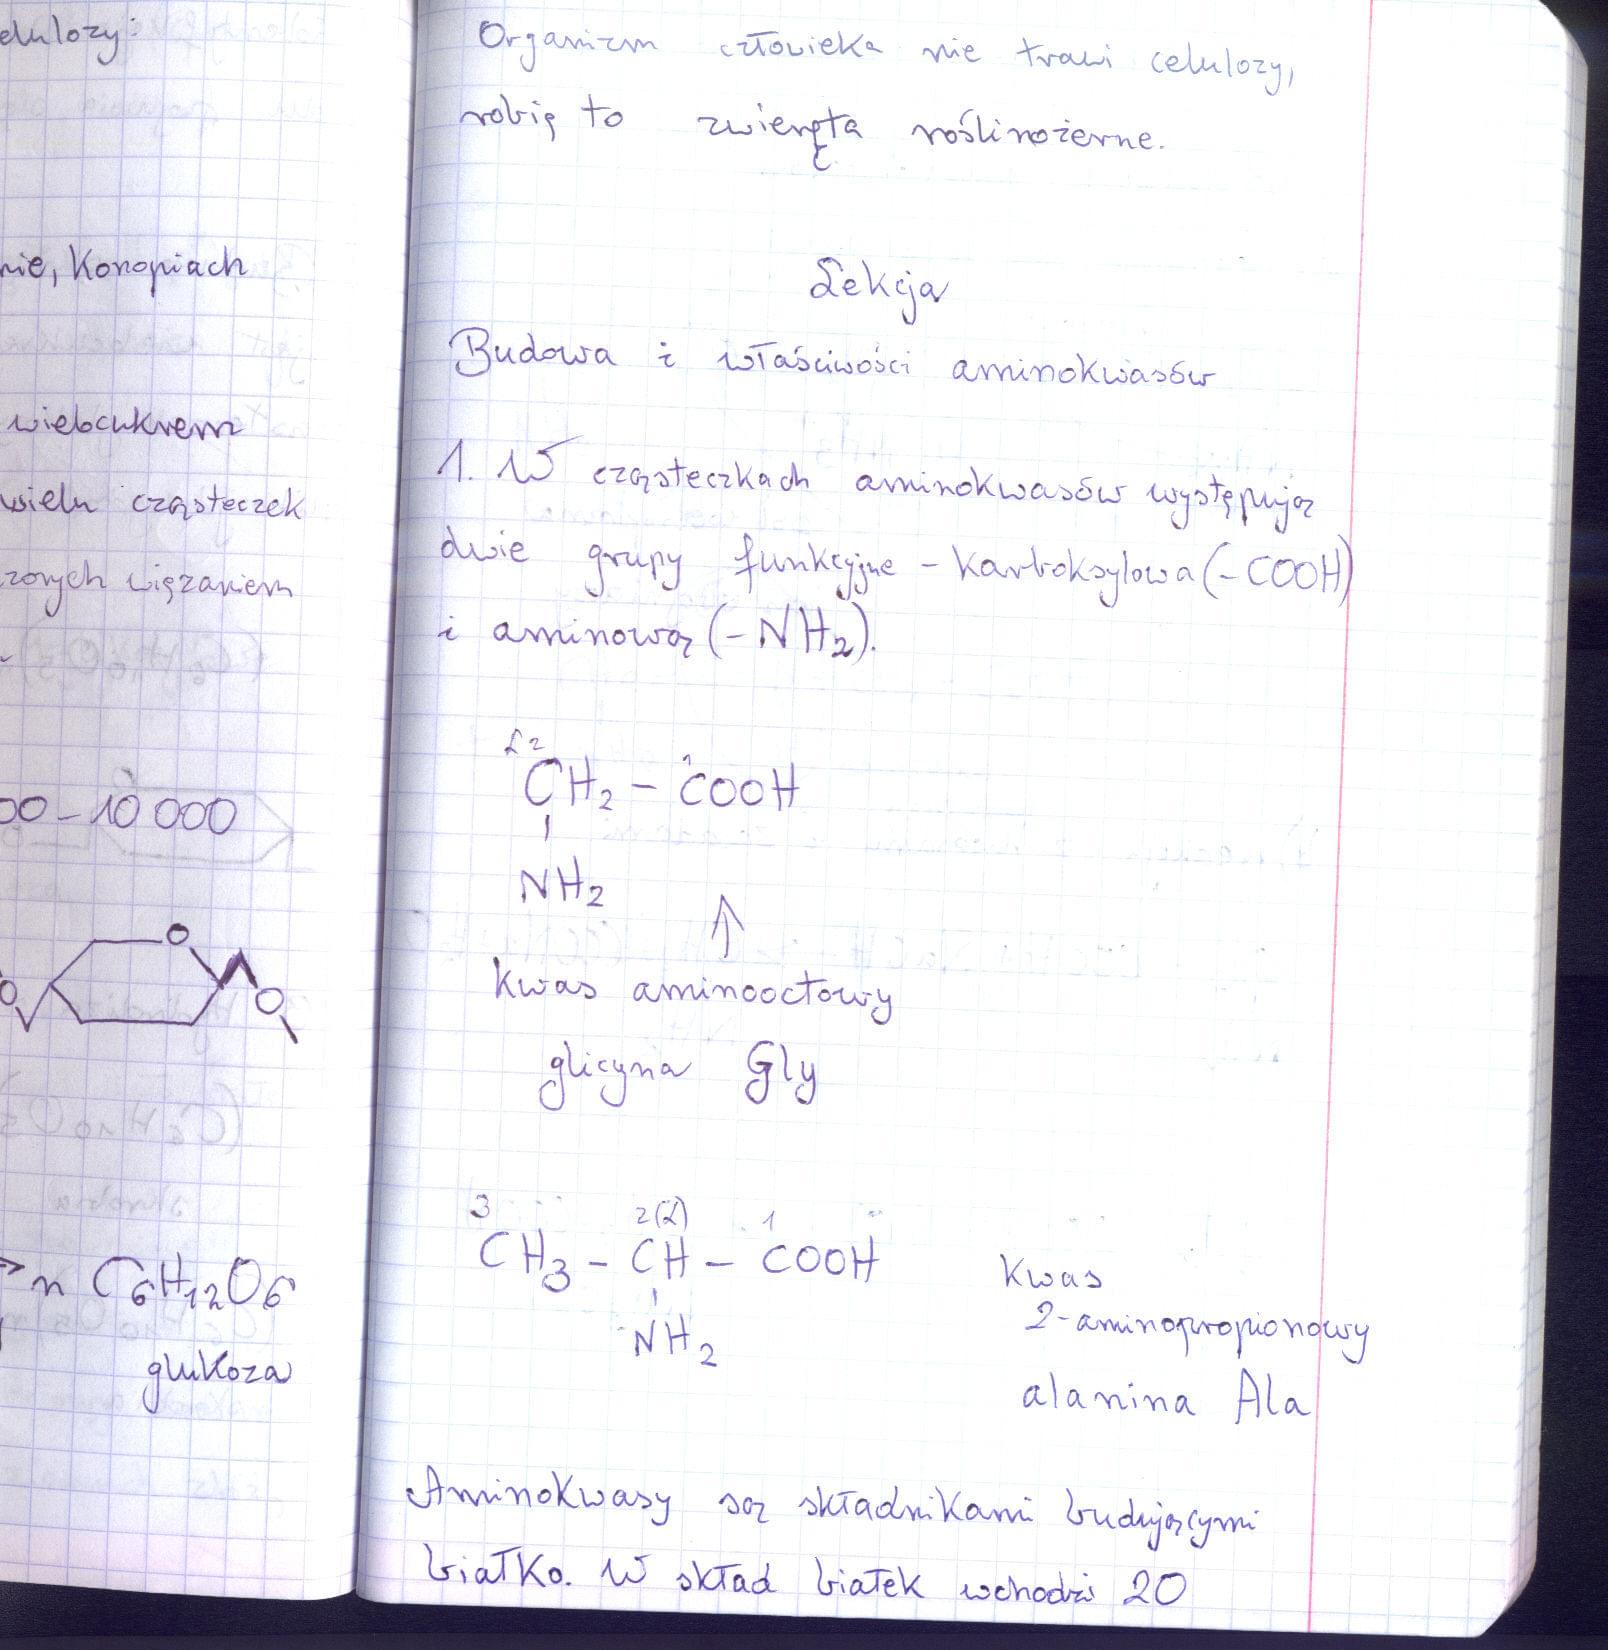 elulozy:
nie, Konopiach
wielocukrem
wielu cząsteczek
zonych wiązaniem
00 – 10 000
O
O
O
→ n C6H12O6
glukoza
Organizm człowieka nie trawi celulozy,
robią to zwierzęta roślinożerne.
Lekcja
Budowa i właściwości aminokwasów
1. W cząsteczkach aminokwasów występują
dwie grupy funkcyjne – karboksylowa (-COOH)
i aminową (-NH2).
α 2 1
CH2 – COOH
NH2
↑
Kwas aminooctowy
glicyna Gly
3 2(α) 1
CH3 – CH – COOH
NH2
Kwas
2-aminopropionowy
alanina Ala
Aminokwasy są składnikami budującymi
białko. W skład białek wchodzi 20